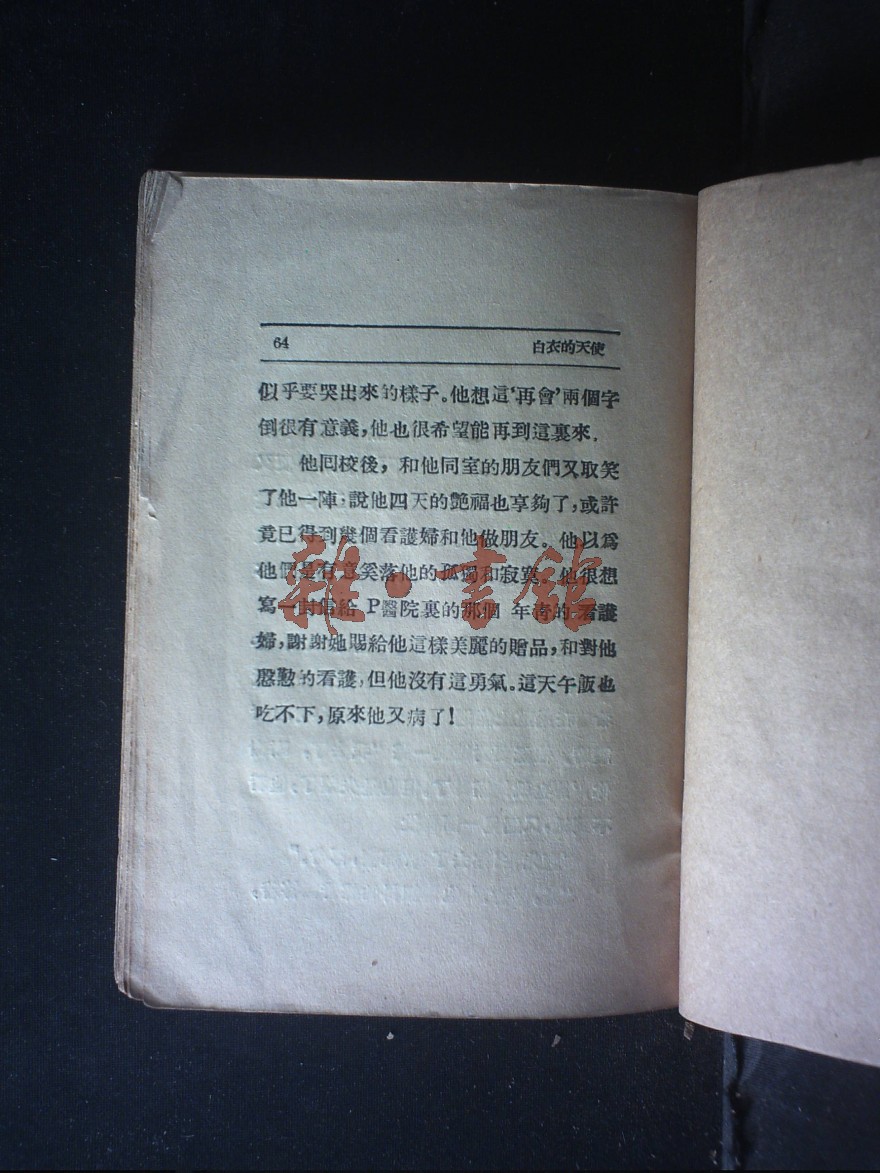 64 白衣的天使
似乎要哭出來的樣子。他想這‘再會’兩個字
倒很有意義,他也很希望能再到這裏來.
他囘校後,和他同室的朋友們又取笑
了他一陣,說他四天的艷福也享夠了,或許
竟已得到幾個看護婦和他做朋友。他以爲
他們是有意奚落他的孤獨和寂寞。他很想
寫一封信給 P醫院裏的那個 年青的看護
婦,謝謝她賜給他這樣美麗的贈品,和對他
慇懃的看護,但他沒有這勇氣。這天午飯也
吃不下,原來他又病了!
雜·書館